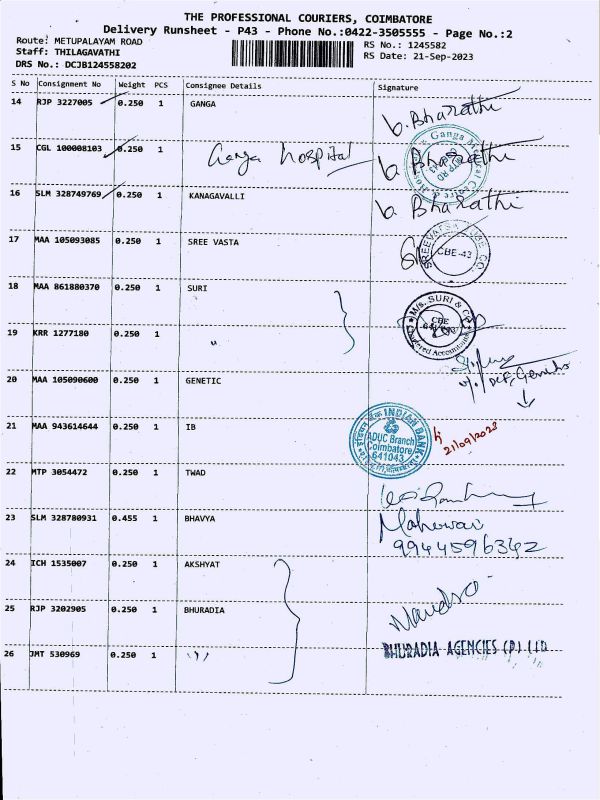 THE PROFESSIONAL COURIERS, COIMBATORE
Delivery Runsheet - P43 - Phone No.:0422-3505555 - Page No.:2
Route: METUPALAYAM ROAD
Staff: THILAGAVATHI
DRS No.: DCJB124558202
RS No.: 1245582
RS Date: 21-Sep-2023
S No Consignment No Weight PCS Consignee Details Signature
14 RJP 3227005 0.250 1 GANGA b. Bharathi
15 CGL 100008103 0.250 1 Ganga hospital b. Bharathi
16 SLM 328749769 0.250 1 KANAGAVALLI b. Bharathi
17 MAA 105093085 0.250 1 SREE VASTA CBE-43
18 MAA 861880370 0.250 1 SURI M/s. SURI & CO CBE Chartered Accountants
19 KRR 1277180 0.250 1 "
20 MAA 105090600 0.250 1 GENETIC
21 MAA 943614644 0.250 1 IB INDIAN BANK ADUC Branch Coimbatore 641043 21/09/2023
22 MTP 3054472 0.250 1 TWAD
23 SLM 328780931 0.455 1 BHAVYA Maheswari
9944596342
24 ICH 1535007 0.250 1 AKSHYAT
25 RJP 3202905 0.250 1 BHURADIA
26 JMT 530969 0.250 1 BHURADIA AGENCIES (P) LTD